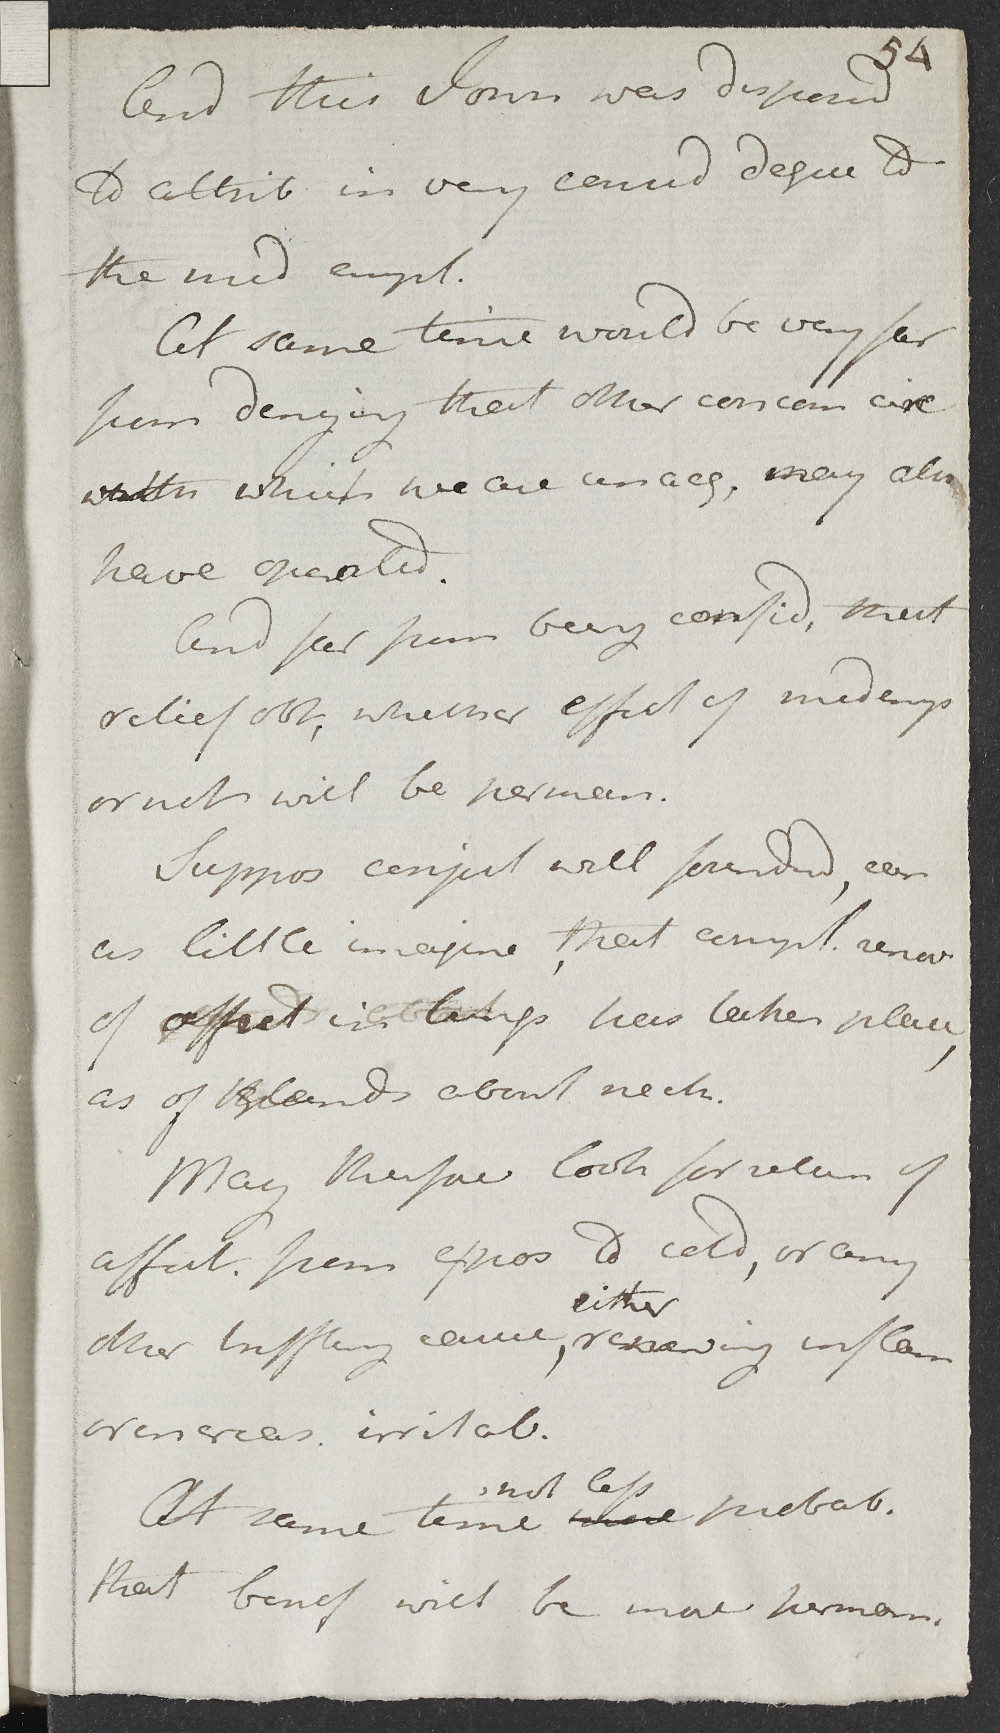 54
And this I own was disposd
to attrib in very consid degree to
the med empl.
At same time would be very far
from denying that other concom circ
with which we are unacq, may also
have operated.
And far from being confid, that
relief obt, whether effect of med emp
or not will be perman.
Suppos conject well founded, can
as little imagine, that compl. remov
of affect in lungs has taken place,
as of glands about neck.
May therfore look for return of
affect. from expos to cold, or any
either
other cause, renewing inflam
or increas. irritab.
not less
At same time more probab.
that benef will be more perman.